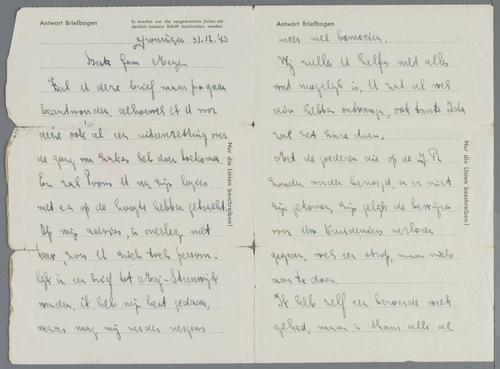 Antwort Briefbogen
Es dürfen nur die vorgedruckten Zeilen mit
deutlich lesbarer Schrift beschrieben werden.
Groningen 31.12.'43
Beste Fam Meyer
Zal U deze brief maar pogaan
beantwoorden, alhoewel ik U voor
deze ook al een uiteenzetting over
de gang van zaken heb doen toekomen
En zal U na zijn logies
met een op de hoogte hebben gebracht
Op mijn advies, in overleg met
haar, zou U zich toch persoon-
lijk in een brief tot Mej. Steenwijk
wenden, ik heb mijn best gedaan,
maar mag mij verder nergens
Nur die Linien beschreiben!
Antwort Briefbogen
mee bemoeien.
Wij zullen U helpen met alles
wat mogelijk is. U zal al wel
hebben ontvangen, ook tante
zal het hare doen.
Mocht de goederen die op de
zouden worden bezorgd, er niet
zijn gekomen, zijn gelijk de bewijzen
voor Uw verloren
gegaan, wel een strop, maar niets
aan te doen.
Ik heb zelf een beroerde week
gehad, maar is thans alle al
Nur die Linien beschreiben!